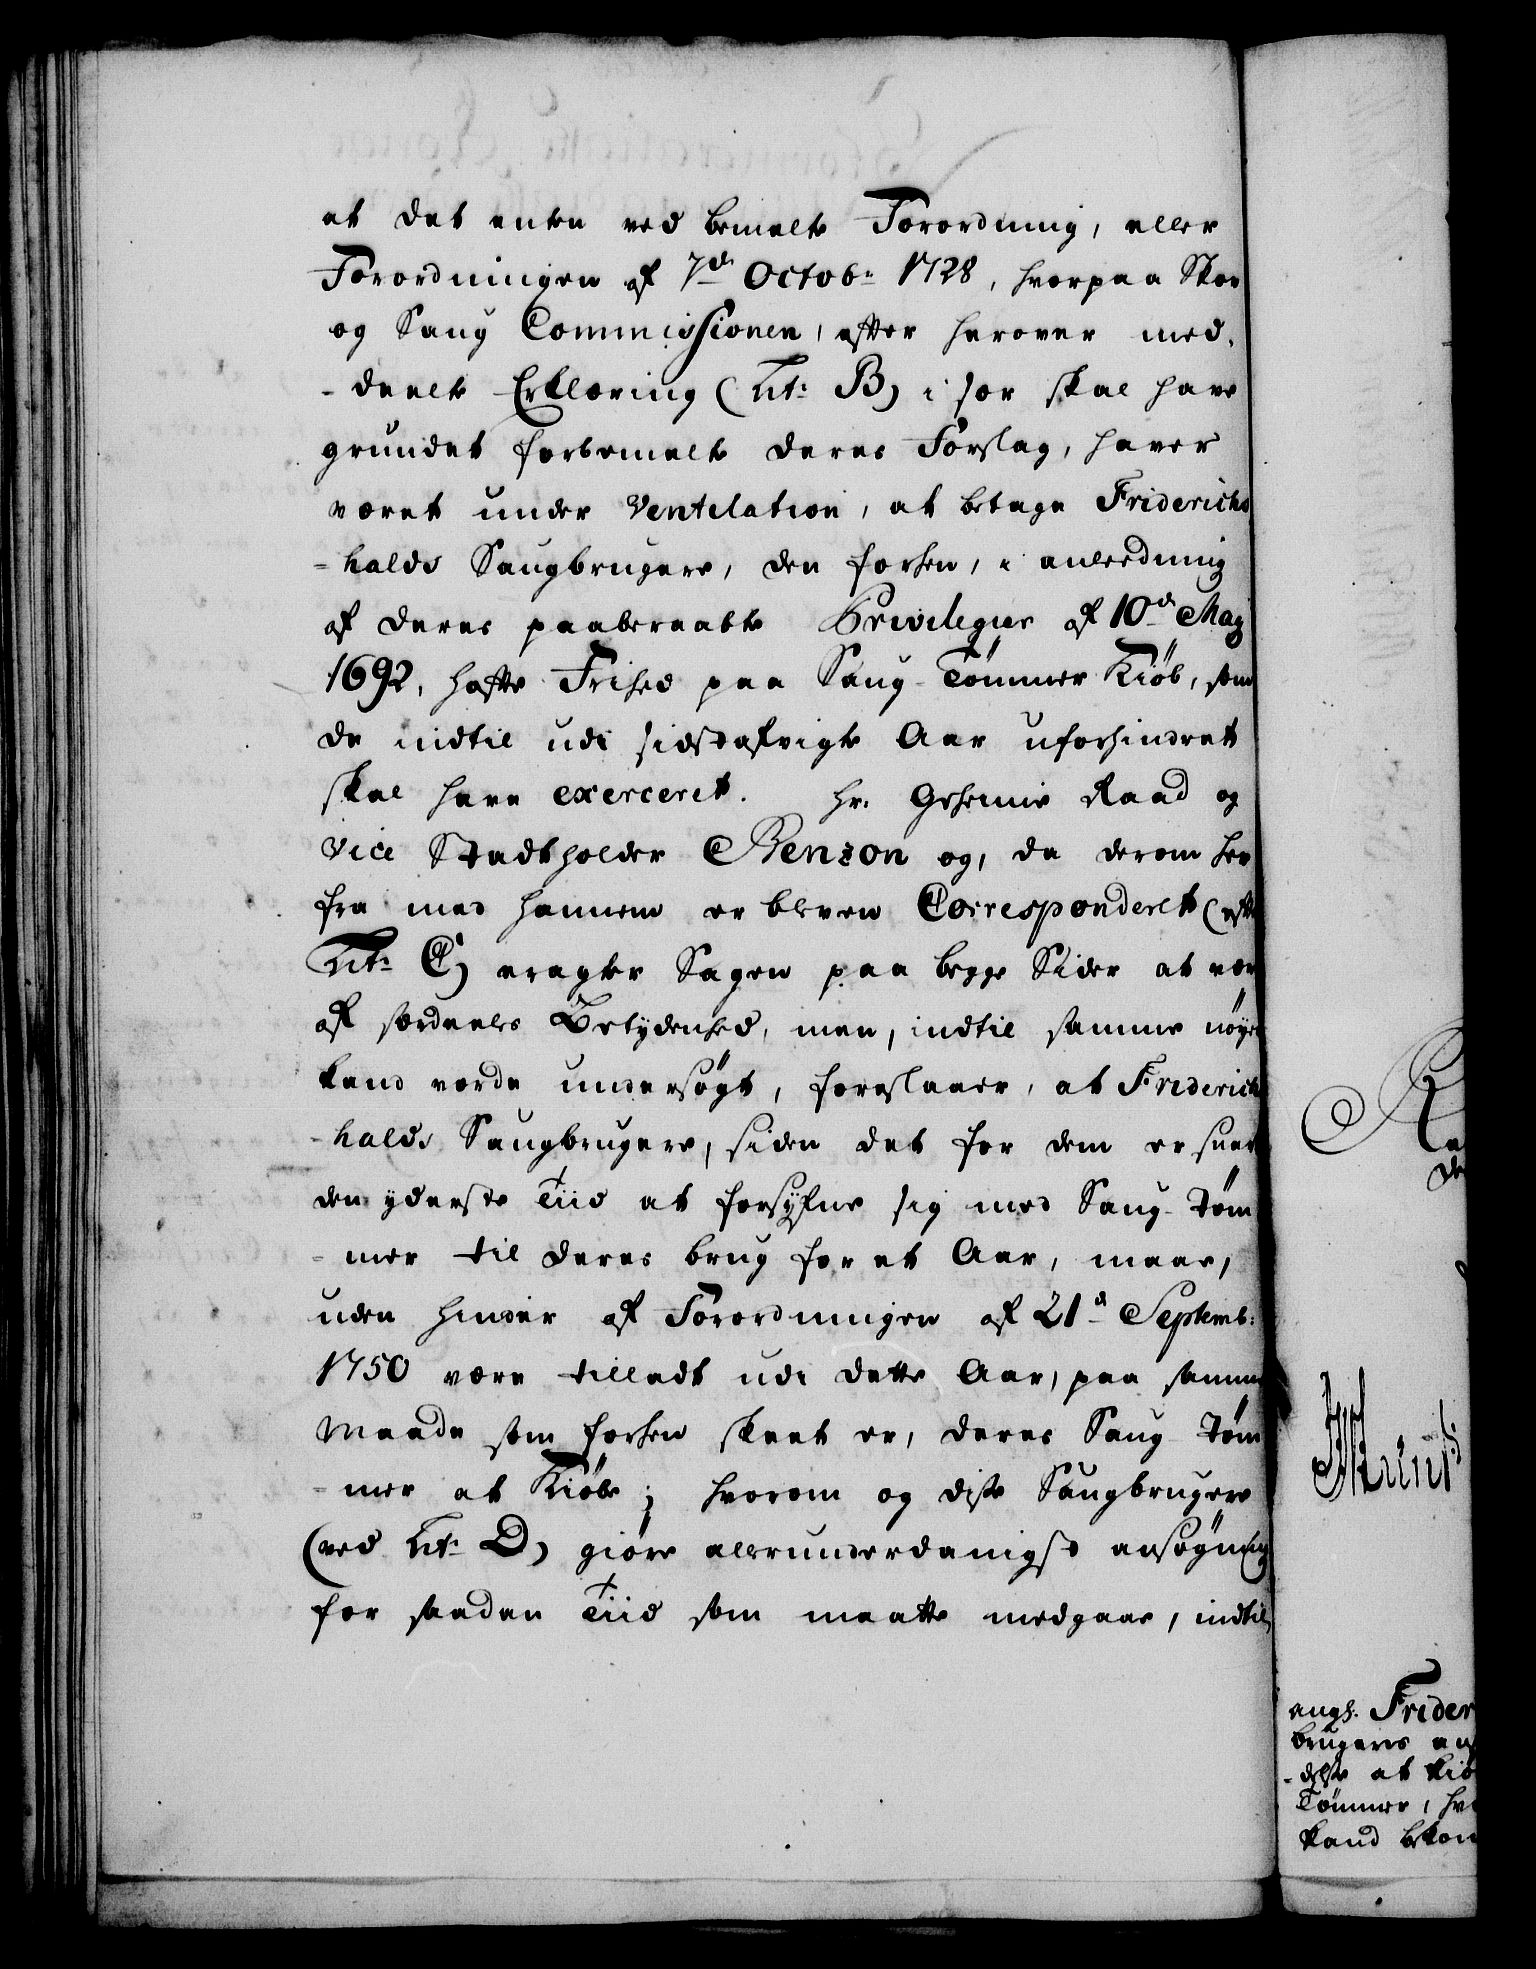 at det enten ved bemelte Forordning, eller
Forordningen af 7de Octobr: 1728, hvorpaa Skov
og Saug Commissionen, efter herover med-
- deelte Erklæring (Litr: B) i sær skal have
grundet forbemelte deres Forslag, haver
været under Ventilation, at betage Friderichs
- halds Saugbrugere, den forhen, i anleedning
af deres paaberaabte Privilegier af 10de Maij
1692, hafte Frihed paa Saug-Tømmer Kiøb, som
de indtil udi sidstafvigte Aar uforhindret
skal have exerceret. Hr. Geheime Raad og
Vice Stadtholder Benzon og, da derom her
fra med hannem er bleven Corresponderet (efter
Litr: C) eragter Sagen paa begge Sider at være
af særdeeles Betydenhed, men, indtil samme nøye
kand vorde undersøgt, foreslaaer, at Friderichs
- halds Saugbrugere, siden det for dem er snart
den yderste Tiid at forsyne sig med Saug-Tøm
- mer til deres brug for et Aar, maae,
uden hinder af Forordningen af 21de Septemb:
1750 være tilladt udi dette Aar, paa samme
Maade som forhen skeet er, deres Saug-Tøm
- mer at Kiøbe; hvorom og diste Saugbrugere
(ved Litr: D) giøre allerunderdanigst ansøgning
for saadan Tiid som maatte medgaae, indtil
angl. Frider
brugeres an
- delse at kiø
Tømmer, hv
kand bekom